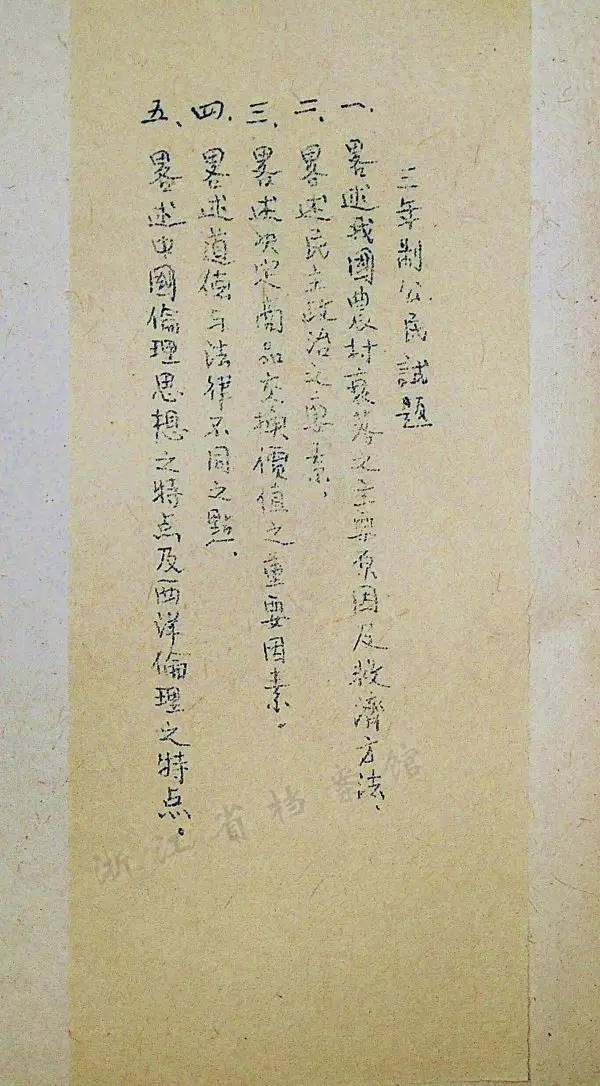 三年制公民試題
一、畧述我國農村衰落之主要原因及救濟方法、
二、畧述民主政治之要素、
三、畧述决定商品交換價值之重要因素。
四、畧述道德与法律不同之點、
五、畧述中國倫理思想之特点及西洋倫理之特点。
浙江省档案馆